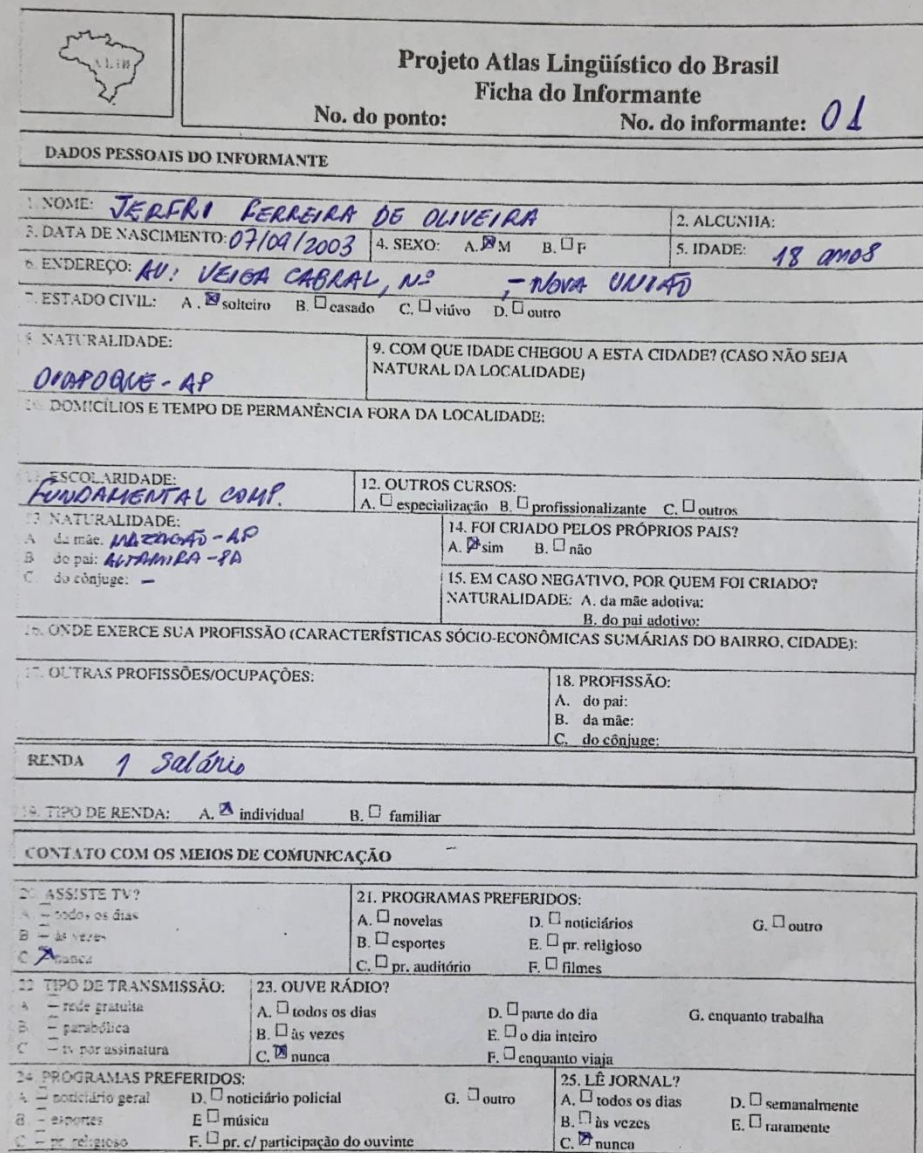 ALiB
Projeto Atlas Lingüístico do Brasil
Ficha do Informante
No. do ponto: No. do informante: 01
DADOS PESSOAIS DO INFORMANTE
1. NOME: JERFRI FERREIRA DE OLIVEIRA
2. ALCUNHA:
3. DATA DE NASCIMENTO: 07/09/2003
4. SEXO: A. M B. F
5. IDADE: 18 anos
6. ENDEREÇO: AV: VEIGA CABRAL, Nº - NOVA UNIÃO
7. ESTADO CIVIL: A. solteiro B. casado C. viúvo D. outro
8. NATURALIDADE:
OIAPOQUE - AP
9. COM QUE IDADE CHEGOU A ESTA CIDADE? (CASO NÃO SEJA
NATURAL DA LOCALIDADE)
10. DOMICÍLIOS E TEMPO DE PERMANÊNCIA FORA DA LOCALIDADE:
11. ESCOLARIDADE:
FUNDAMENTAL COMP.
12. OUTROS CURSOS:
A. especialização B. profissionalizante C. outros
13. NATURALIDADE:
A da mãe: MAZAGÃO - AP
B do pai: ALTAMIRA - PA
C. do cônjuge: -
14. FOI CRIADO PELOS PRÓPRIOS PAIS?
A. sim B. não
15. EM CASO NEGATIVO, POR QUEM FOI CRIADO?
NATURALIDADE: A. da mãe adotiva:
B. do pai adotivo:
16. ONDE EXERCE SUA PROFISSÃO (CARACTERÍSTICAS SÓCIO-ECONÔMICAS SUMÁRIAS DO BAIRRO, CIDADE):
17. OUTRAS PROFISSÕES/OCUPAÇÕES:
18. PROFISSÃO:
A. do pai:
B. da mãe:
C. do cônjuge:
RENDA 1 Salário
19. TIPO DE RENDA: A. individual B. familiar
CONTATO COM OS MEIOS DE COMUNICAÇÃO
20. ASSISTE TV?
A todos os dias
B às vezes
C nunca
21. PROGRAMAS PREFERIDOS:
A. novelas D. noticiários G. outro
B. esportes E. pr. religioso
C. pr. auditório F. filmes
22 TIPO DE TRANSMISSÃO:
A rede gratuita
B parabólica
C tv por assinatura
23. OUVE RÁDIO?
A. todos os dias D. parte do dia G. enquanto trabalha
B. às vezes E. o dia inteiro
C. nunca F. enquanto viaja
24. PROGRAMAS PREFERIDOS:
A noticiário geral D. noticiário policial G. outro
B esportes E música
C pr. religioso F. pr. c/ participação do ouvinte
25. LÊ JORNAL?
A. todos os dias D. semanalmente
B. às vezes E. raramente
C. nunca